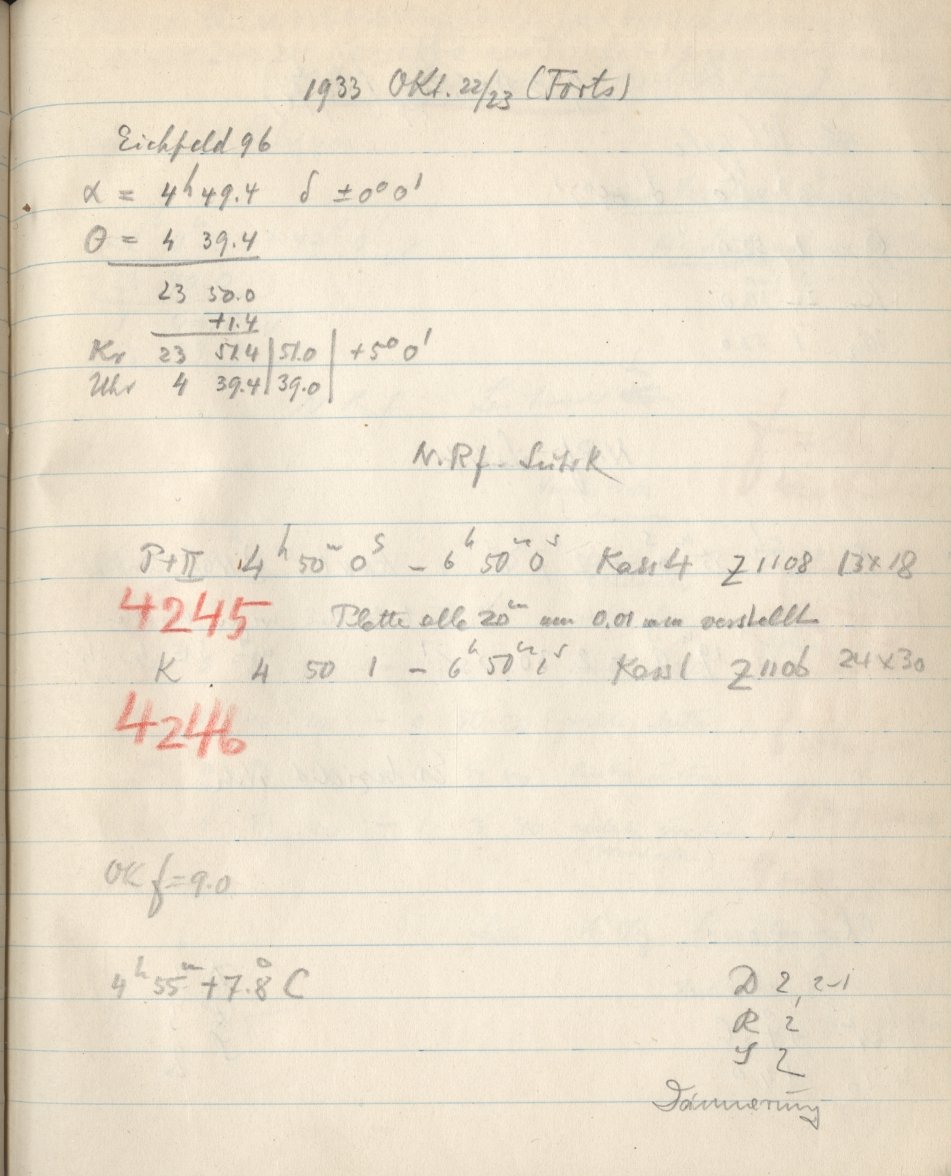 1933 Okt. 22/23 (Forts)
Eichfeld 96
α = 4h 49.4 δ ±0° 0'
θ = 4 39.4
23 50.0
+1.4
Kr 23 51.4 | 51.0 | +5° 0'
Uhr 4 39.4 | 39.0 |
N. Rf.
P+II 4h 50m 0s – 6h 50m 0s Kass 4 Z 1108 13x18
4245 Platte alle 20m um 0.01 mm verstellt
K. 4 50 1 – 6h 50m 1s Kass 1 Z 1106 24x30
4246
OK f=9.0
4h 55m +7.8° C
D 2, 2-1
R 2
S 2
Dämmerung